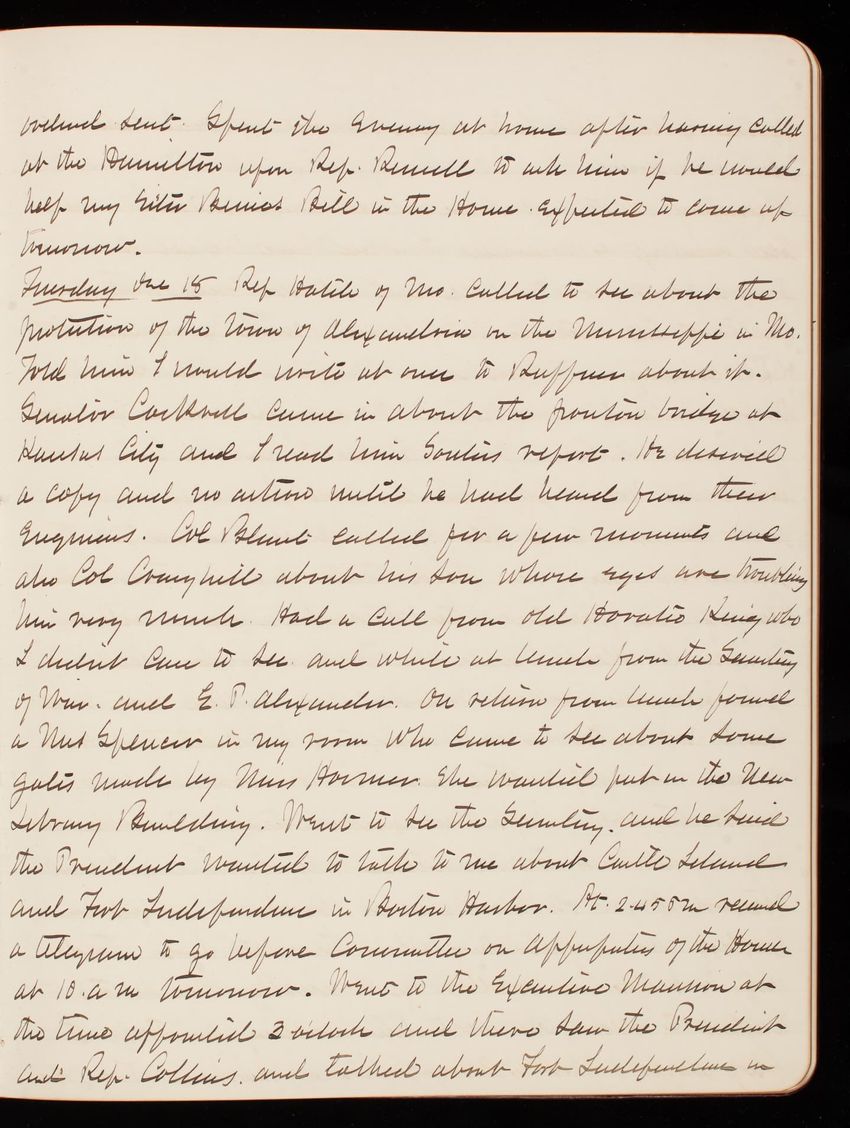 ordered sent. Spent the Evening at home after having called
at the Hamilton upon Rep. to ask him if he would
help my Sister Bill in the House. Expected to come up
tomorrow.
Tuesday Dec 18 Rep Hatch of Mo. called to see about the
protection of the town of Alexandria on the Mississippi in Mo.
Told him I would write at once to Ruffner about it.
Senator Cockrell came in about the ponton bridge at
Kansas City and I read him report. He desired
a copy and no action until he had heard from their
Engineers. Col Blunt called for a few moments and
also Col Craighill about his son whose eyes are troubling
him very much. Had a call from old Horatio King who
I didn't care to see. and while at lunch from the Secretary
of War. and E. P. Alexander. On return from lunch found
a Mrs Spencer in my room who came to see about some
gates made by Miss Hosmer. She wanted put in the New
Library Building. Went to see the Secretary. and he said
the President wanted to talk to me about Castle Island
and Fort Independence in Boston Harbor. At. 2.45 P m received
a telegram to go before Committee on of the House
at 10. a m tomorrow. Went to the Executive Mansion at
the time appointed 3 oclock and there saw the President
and Rep. Collins. and talked about Fort Independence in